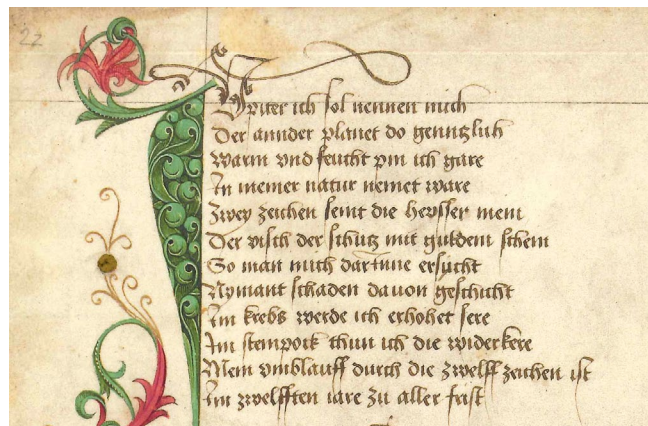 22
Jupiter ich sol nennen mich
Der annder planet do genntzlich
Warm vnd feucht pin ich gare
In meiner natur nemet ware
Zwey zeichen seint die hewsser mein
Der visch der schutz mit guldem schein
So man mich darinne ersucht
Nymant schaden dauon geschicht
Im krebs werde ich erhohet sere
Im steinpock thun ich die widerkere
Mein vmblauff durch die zwelff zeichen ist
Im zwelfften iare zu aller frist